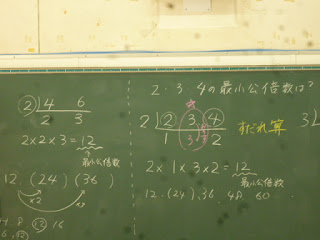 2) 4 6
2 3
2×2×3=12
最小公倍数
12. (24) (36)
×2
×3
16
2・3・4の最小公倍数は?
2) 2 3 4
1 3 2
すだれ算
2×1×3×2=12
最小公倍数
12. (24). 36. 48. 60
3